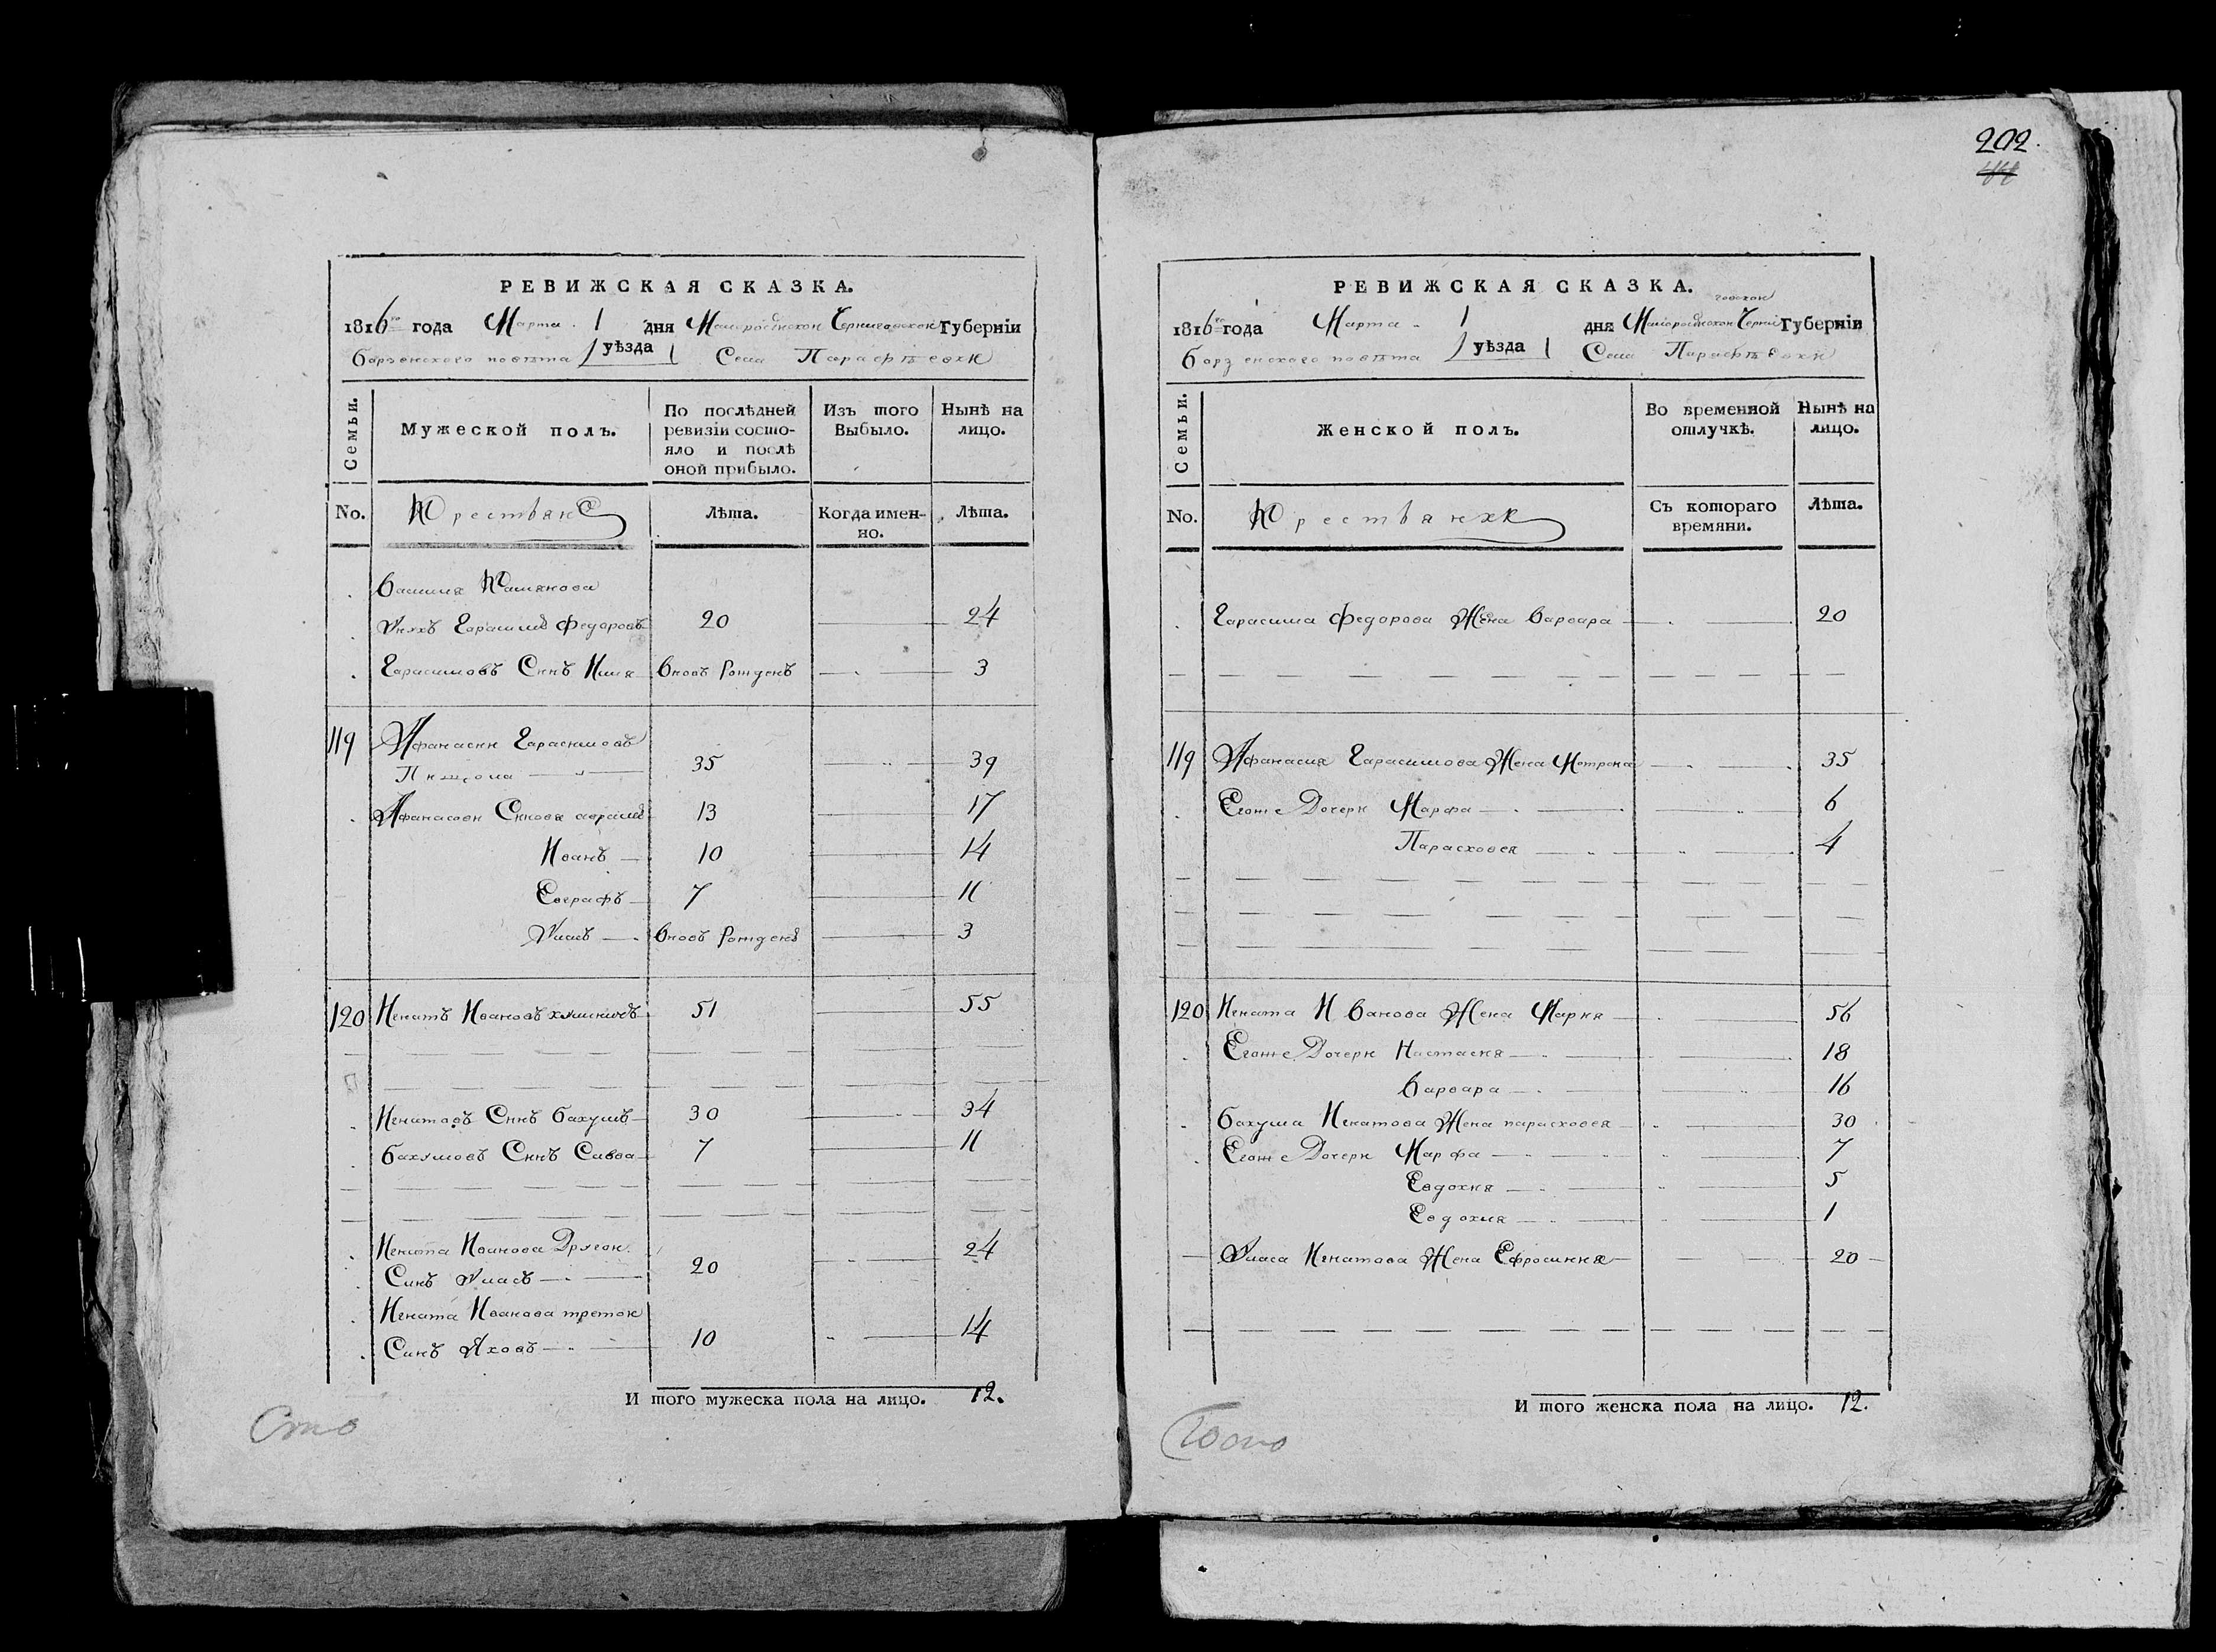 РЕВИЖСКАЯ СКАЗКА.
1816го года Марта 1 дня Малоросийской Черниговской Губерніи
Борзенского повѣта уѣзда Села Парафѣевки
Семьи.
Мужеской полъ.
По послѣдней ревизіи состо-
яло и послѣ
оной прибыло.
Изъ того
Выбыло.
Нынѣ на
лицо.
No.
Крестяне
Лѣта.
Когда имен-
но.
Лѣта.
Василия
Унукъ Гарасимъ Федоровъ 20 24
Гарасимовъ Синъ Илия вновь рожденъ 3
119 Афанасии Гарасимовъ
35 39
Афанасовы Синовя 13 17
Иванъ 10 14
Евграфъ 7 11
Уласъ вновь рожденъ 3
120 Игнатъ Ивановъ 51 55
Игнатовъ Синъ Бакумъ 30 34
Бакумовъ Синъ Савва 7 11
Игната Иванова Другои
Синъ Уласъ 20 24
Игната Иванова третои
Синъ Яковъ 10 14
И того мужеска пола на лицо. 12.
202.
РЕВИЖСКАЯ СКАЗКА.
1816го года Марта 1 дня Малоросийской Черниговской Губерніи
Борзенского повѣта уѣзда Села Парафѣевки
Семьи.
Женской полъ.
Во временной
отлучкѣ.
Нынѣ на
лицо.
No.
Съ котораго
времяни.
Лѣта.
Гарасима Федорова Жена Варвара 20
119 Афанасия Гарасимова Жена Мотрона 35
Егоже Дочери Марфа 6
Парасковея 4
120 Игната Иванова Жена Мария 56
Егоже Дочери Настасия 18
Варвара 16
Бакума Игнатова Жена парасковея 30
Егоже Дочери Марфа 7
Евдокия 5
Евдокия 1
Уласа Игнатова Жена Ефросиния 20
И того женска пола на лицо. 12.